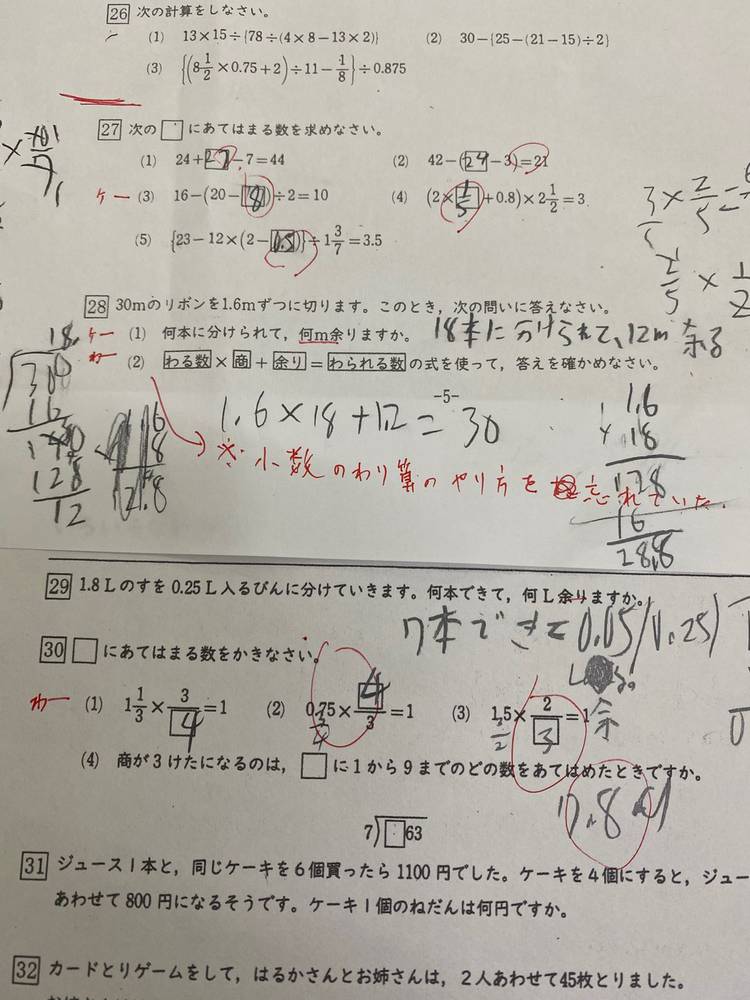 26 次の計算をしなさい。
(1) 13×15÷{78÷(4×8−13×2)} (2) 30−{25−(21−15)÷2}
(3) {(8 1/2×0.75+2)÷11−1/8}÷0.875
27 次の□にあてはまる数を求めなさい。
(1) 24+27−7=44 (2) 42−(24−3)=21
ケー (3) 16−(20−8)÷2=10 (4) (2×1/5+0.8)×2 1/2=3
(5) {23−12×(2−0.5)}÷1 3/7=3.5
3/5×2/5=
2/5×1/2
28 30mのリボンを1.6mずつに切ります。このとき，次の問いに答えなさい。
ケー (1) 何本に分けられて，何m余りますか。 18本に分けられて、12m余る
わー (2) わる数×商+余り=わられる数の式を使って，答えを確かめなさい。
-5-
1.6×18+1.2=30
※小数のわり算のやり方を忘れていた。
18
300
16
140
128
12
1.6
×18
128
16
28.8
29 1.8Lのすを0.25L入るびんに分けていきます。何本できて，何L余りますか。
7本できて0.05
余
30 □にあてはまる数をかきなさい。
わー (1) 1 1/3×3/4=1 (2) 0.75×4/3=1 (3) 1.5×2/3=1
3/4 3/2
(4) 商が3けたになるのは，□に1から9までのどの数をあてはめたときですか。
7.8.9
7)□63
31 ジュース1本と，同じケーキを6個買ったら1100円でした。ケーキを4個にすると，ジュー
あわせて800円になるそうです。ケーキ1個のねだんは何円ですか。
32 カードとりゲームをして，はるかさんとお姉さんは，2人あわせて45枚とりました。